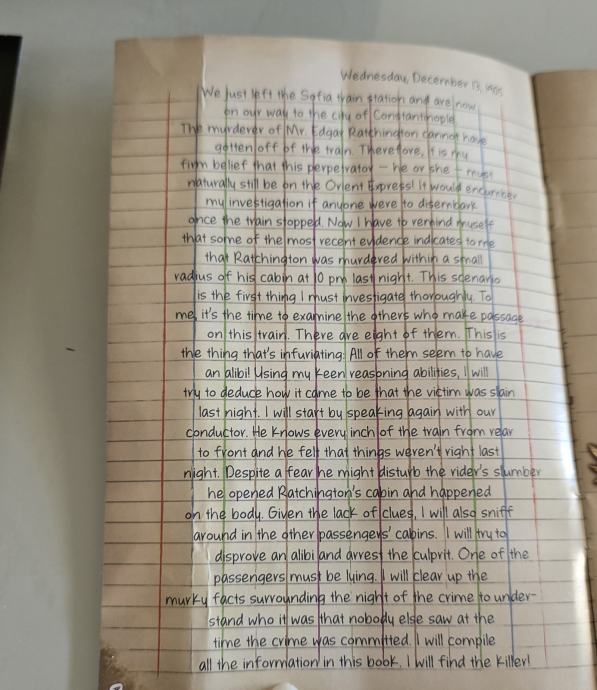 Wednesday, December 13, 1905
We just left the Sofia train station and are now
on our way to the city of Constantinople.
The murderer of Mr. Edgar Ratchington cannot have
gotten off of the train. Therefore, it is my
firm belief that this perpetrator – he or she – must
naturally still be on the Orient Express! It would encumber
my investigation if anyone were to disembark
once the train stopped. Now I have to remind myself
that some of the most recent evidence indicates to me
that Ratchington was murdered within a small
radius of his cabin at 10 pm last night. This scenario
is the first thing I must investigate thoroughly. To
me, it's the time to examine the others who make passage
on this train. There are eight of them. This is
the thing that's infuriating: All of them seem to have
an alibi! Using my keen reasoning abilities, I will
try to deduce how it came to be that the victim was slain
last night. I will start by speaking again with our
conductor. He knows every inch of the train from rear
to front and he felt that things weren't right last
night. Despite a fear he might disturb the rider's slumber
he opened Ratchington's cabin and happened
on the body. Given the lack of clues, I will also sniff
around in the other passengers' cabins. I will try to
disprove an alibi and arrest the culprit. One of the
passengers must be lying. I will clear up the
murky facts surrounding the night of the crime to under-
stand who it was that nobody else saw at the
time the crime was committed. I will compile
all the information in this book. I will find the killer!